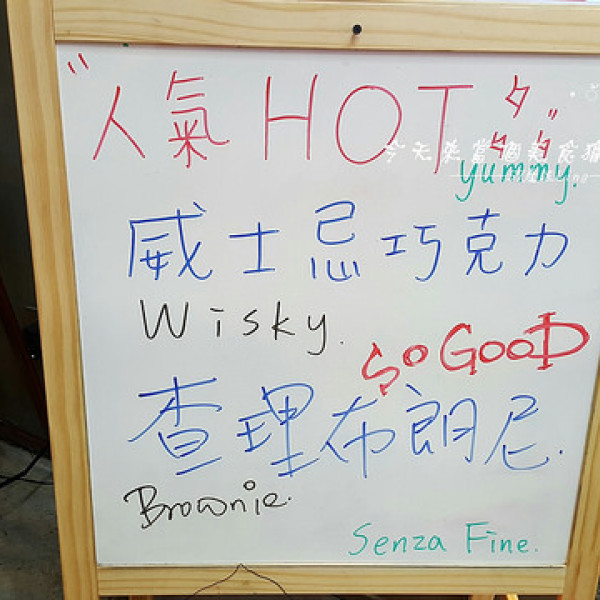 "人氣 HOT 多多"
今天來當個美食
yummy.
威士忌巧克力
Wisky.
SO GOOD
查理布朗尼.
Brownie.
Senza Fine.